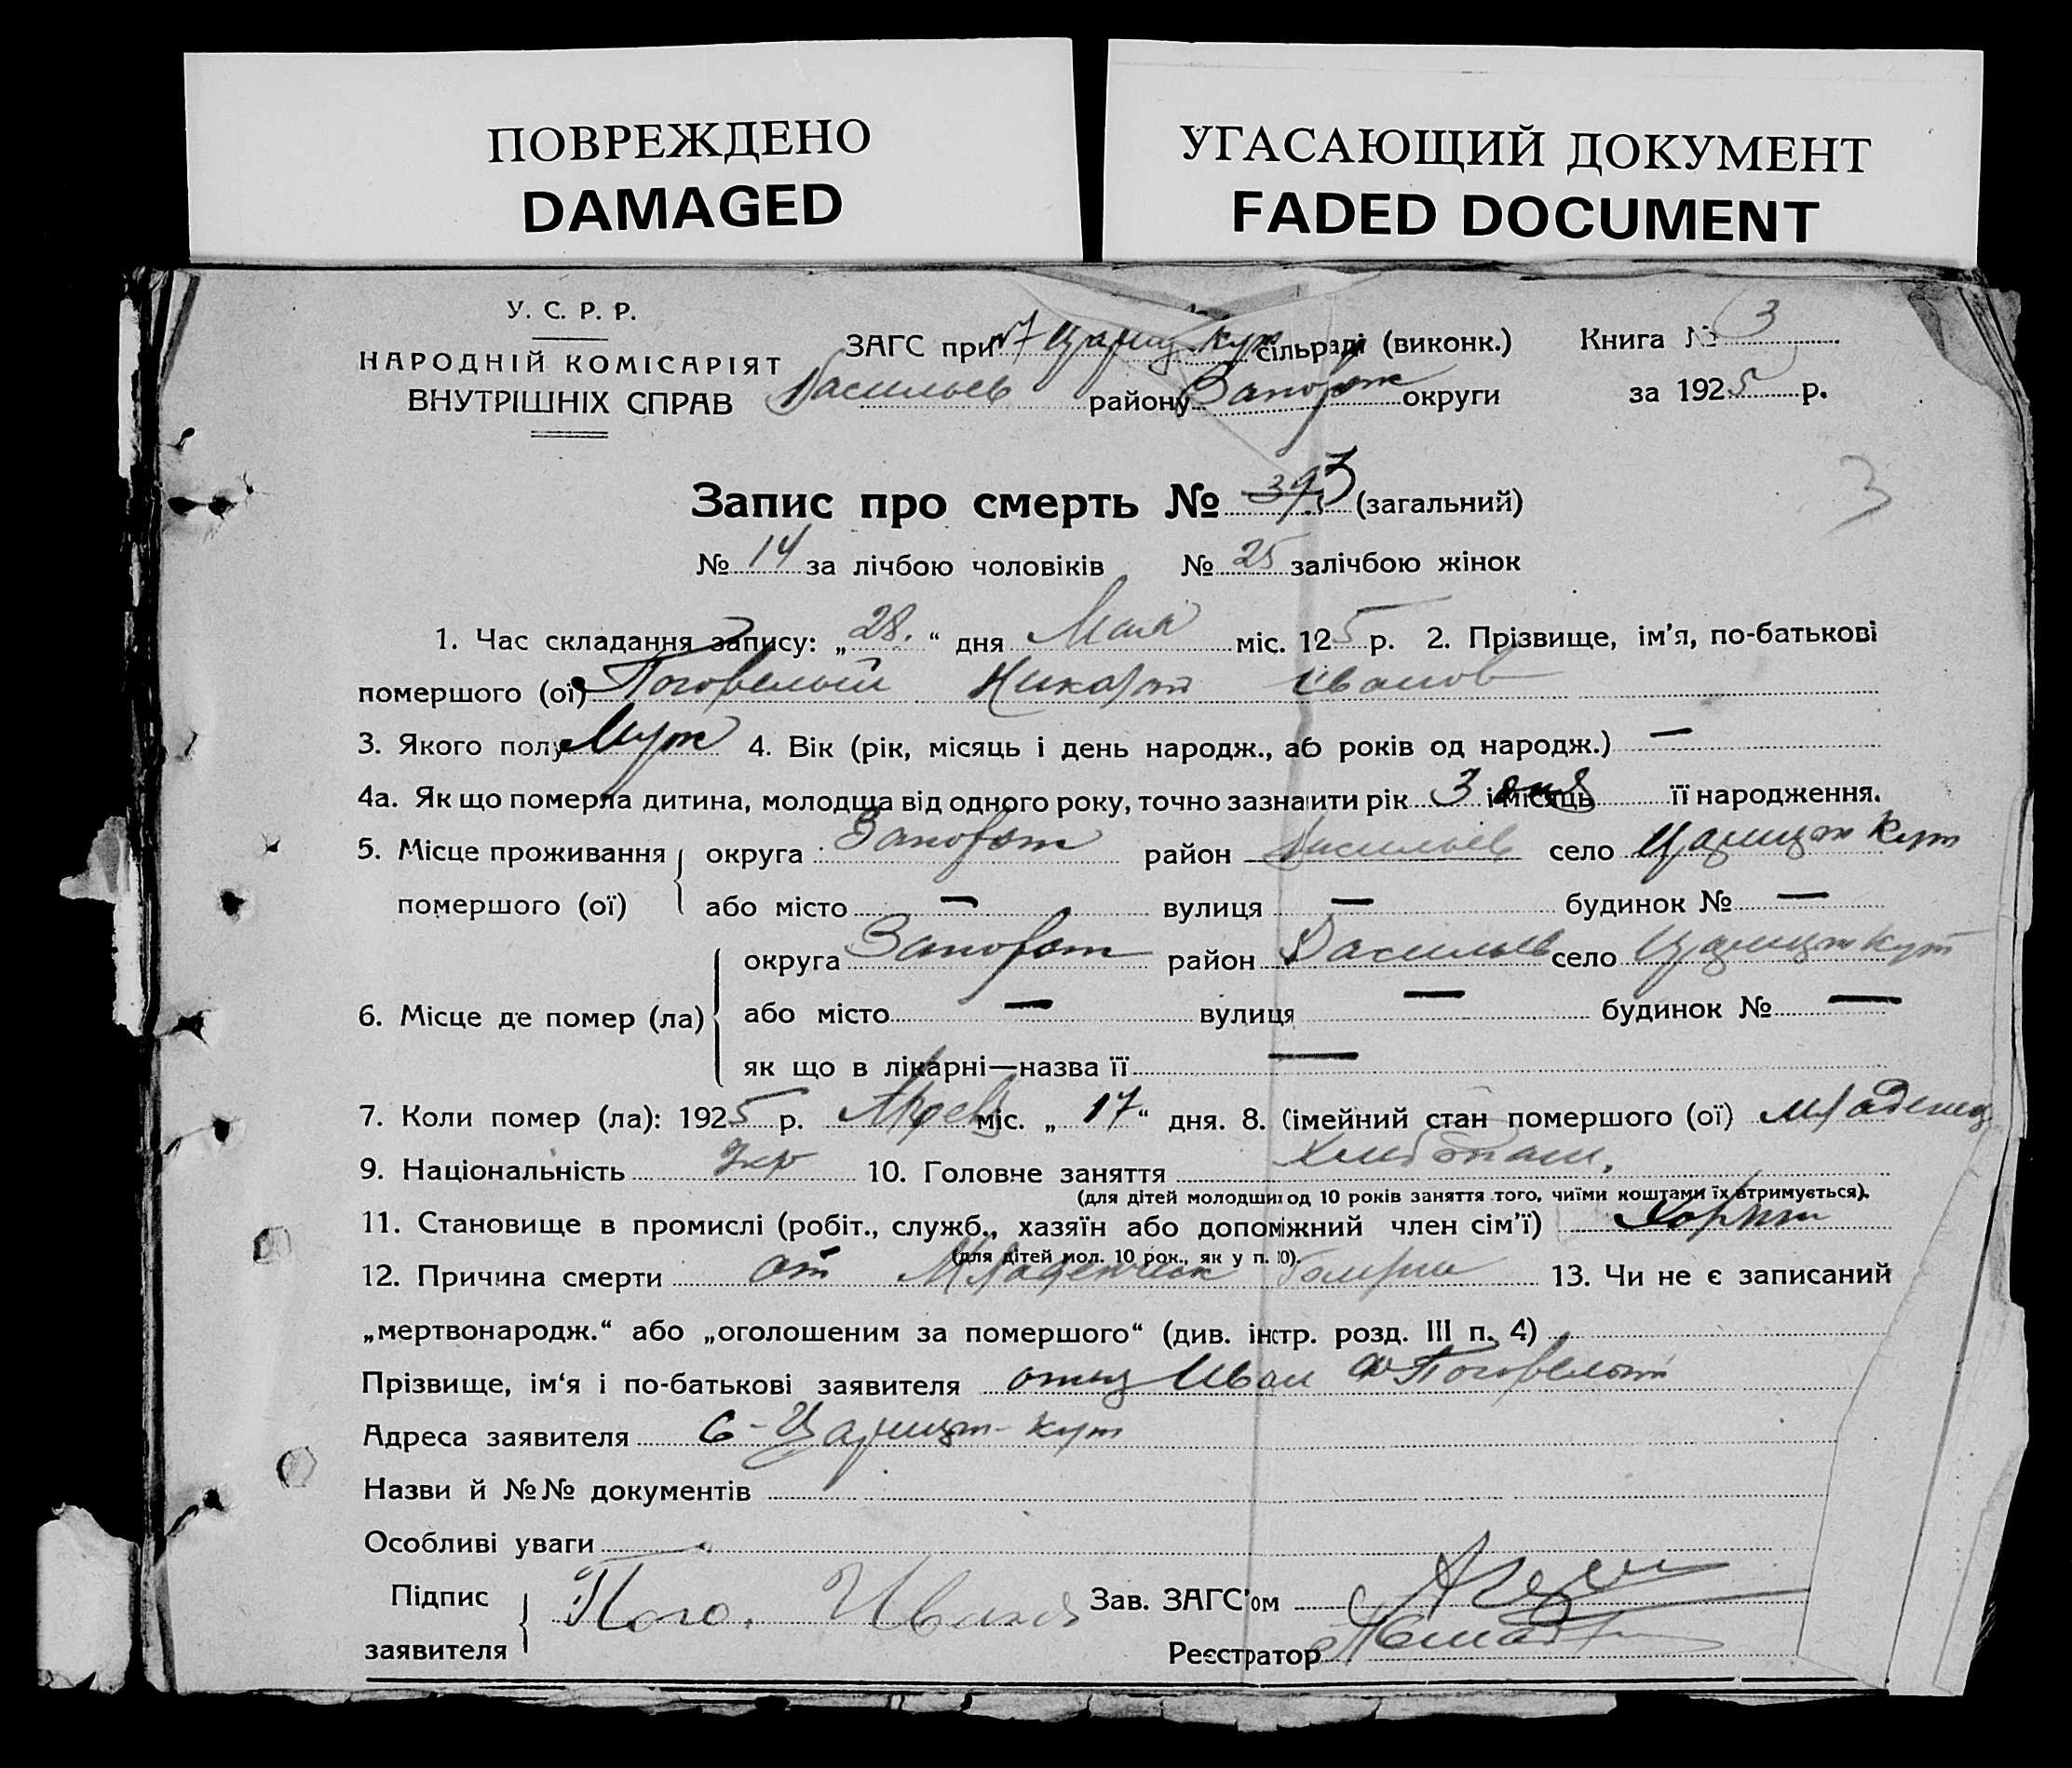 ПОВРЕЖДЕНО
DAMAGED
УГАСАЮЩИЙ ДОКУМЕНТ
FADED DOCUMENT
У. С. Р. Р.
НАРОДНІЙ КОМІСАРІЯТ
ВНУТРІШНІХ СПРАВ
ЗАГС при Цариц. Кут сільраді (виконк.)
Васильев району Запорож округи
Книга № 3
за 1925 р.
3
Запис про смерть № 39 3 (загальний)
№ 14 за лічбою чоловіків № 25 за лічбою жінок
1. Час складання запису: „28.“ дня Мая міс. 125 р. 2. Прізвище, ім'я, по-батькові
помершого (ої) Погорелый Иванов
3. Якого полу Муж 4. Вік (рік, місяць і день народж., або років од народж.) —
4а. Як що померла дитина, молодща від одного року, точно зазначити рік 3 дня і місяць її народження.
5. Місце проживання помершого (ої) округа Запорож район Васильев село Царицы Кут
або місто — вулиця — будинок № —
6. Місце де помер (ла) округа Запорож район Васильев село Царицы Кут
або місто — вулиця — будинок № —
як що в лікарні—назва її —
7. Коли помер (ла): 1925 р. міс. „17“ дня. 8. Сімейний стан помершого (ої) младенец
9. Національність Укр 10. Головне заняття
(для дітей молодших од 10 років заняття того, чиїми коштами їх втримується).
11. Становище в промислі (робіт., служб., хазяїн або допоміжний член сім'ї)
(для дітей мол. 10 рок., як у п. 10).
12. Причина смерти от Младенческ 13. Чи не є записаний
„мертвонародж.“ або „оголошеним за помершого“ (див. інстр. розд. III п. 4)
Прізвище, ім'я і по-батькові заявителя отец Иван Погорелый
Адреса заявителя С-Царицы-Кут
Назви й №№ документів
Особливі уваги
Підпис заявителя Пого. Иван
Зав. ЗАГС'ом
Реєстратор